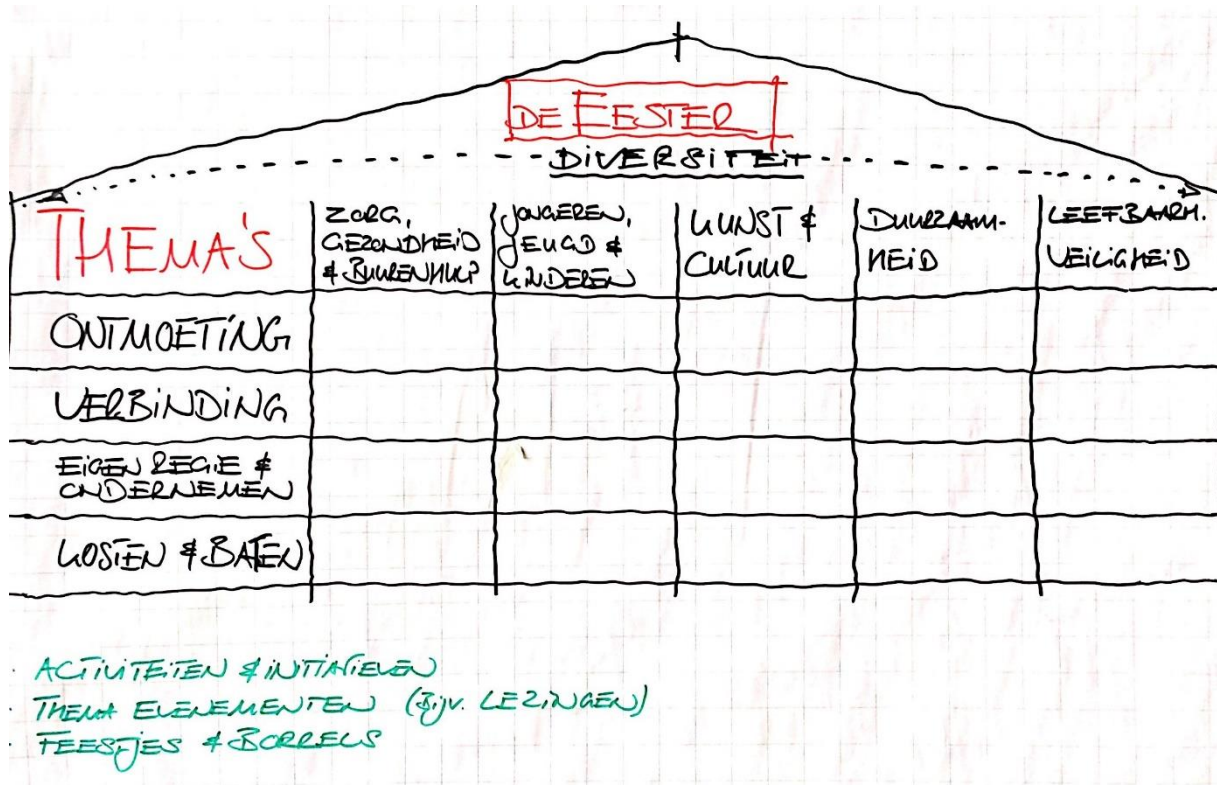 DE EESTER
DIVERSITEIT
THEMA'S
ZORG,
GEZONDHEID
& BURENHULP
JONGEREN,
JEUGD &
KINDEREN
KUNST &
CULTUUR
DUURZAAM-
HEID
LEEFBAARH.
VEILIGHEID
ONTMOETING
VERBINDING
EIGEN REGIE &
ONDERNEMEN
KOSTEN & BATEN
ACTIVITEITEN & INTIATIEVEN
THEMA EVENEMENTEN (Bijv. LEZINGEN)
FEESTJES & BORRELS